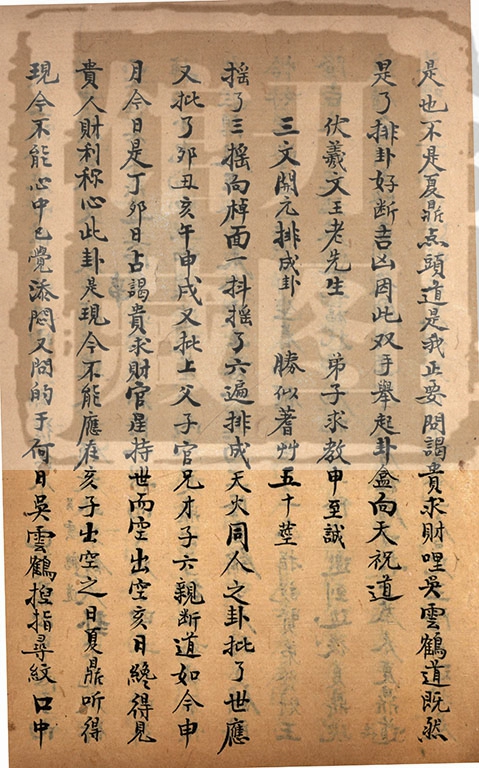 是也不是夏鼎点頭道是我正要問謁貴求財哩吳雲鶴道既然
是了排卦好断吉凶因此双手舉起卦盒向天祝道
伏羲文王老先生 弟子求教申至誠
三文開元排成卦 勝似蓍艸五十莖
摇了三摇向棹面一抖摇了六遍排成天火同人之卦批了世應
又批了夘丑亥午申戌又批上父子官兄才子六親断道如今申
月今日是丁夘日占謁貴求財官星持世而空出空亥日纔得見
貴人財利称心此卦是現今不能應在亥子出空之日夏鼎听得
現今不能心中已覺添悶又問的于何日吳雲鶴揑指尋紋口中